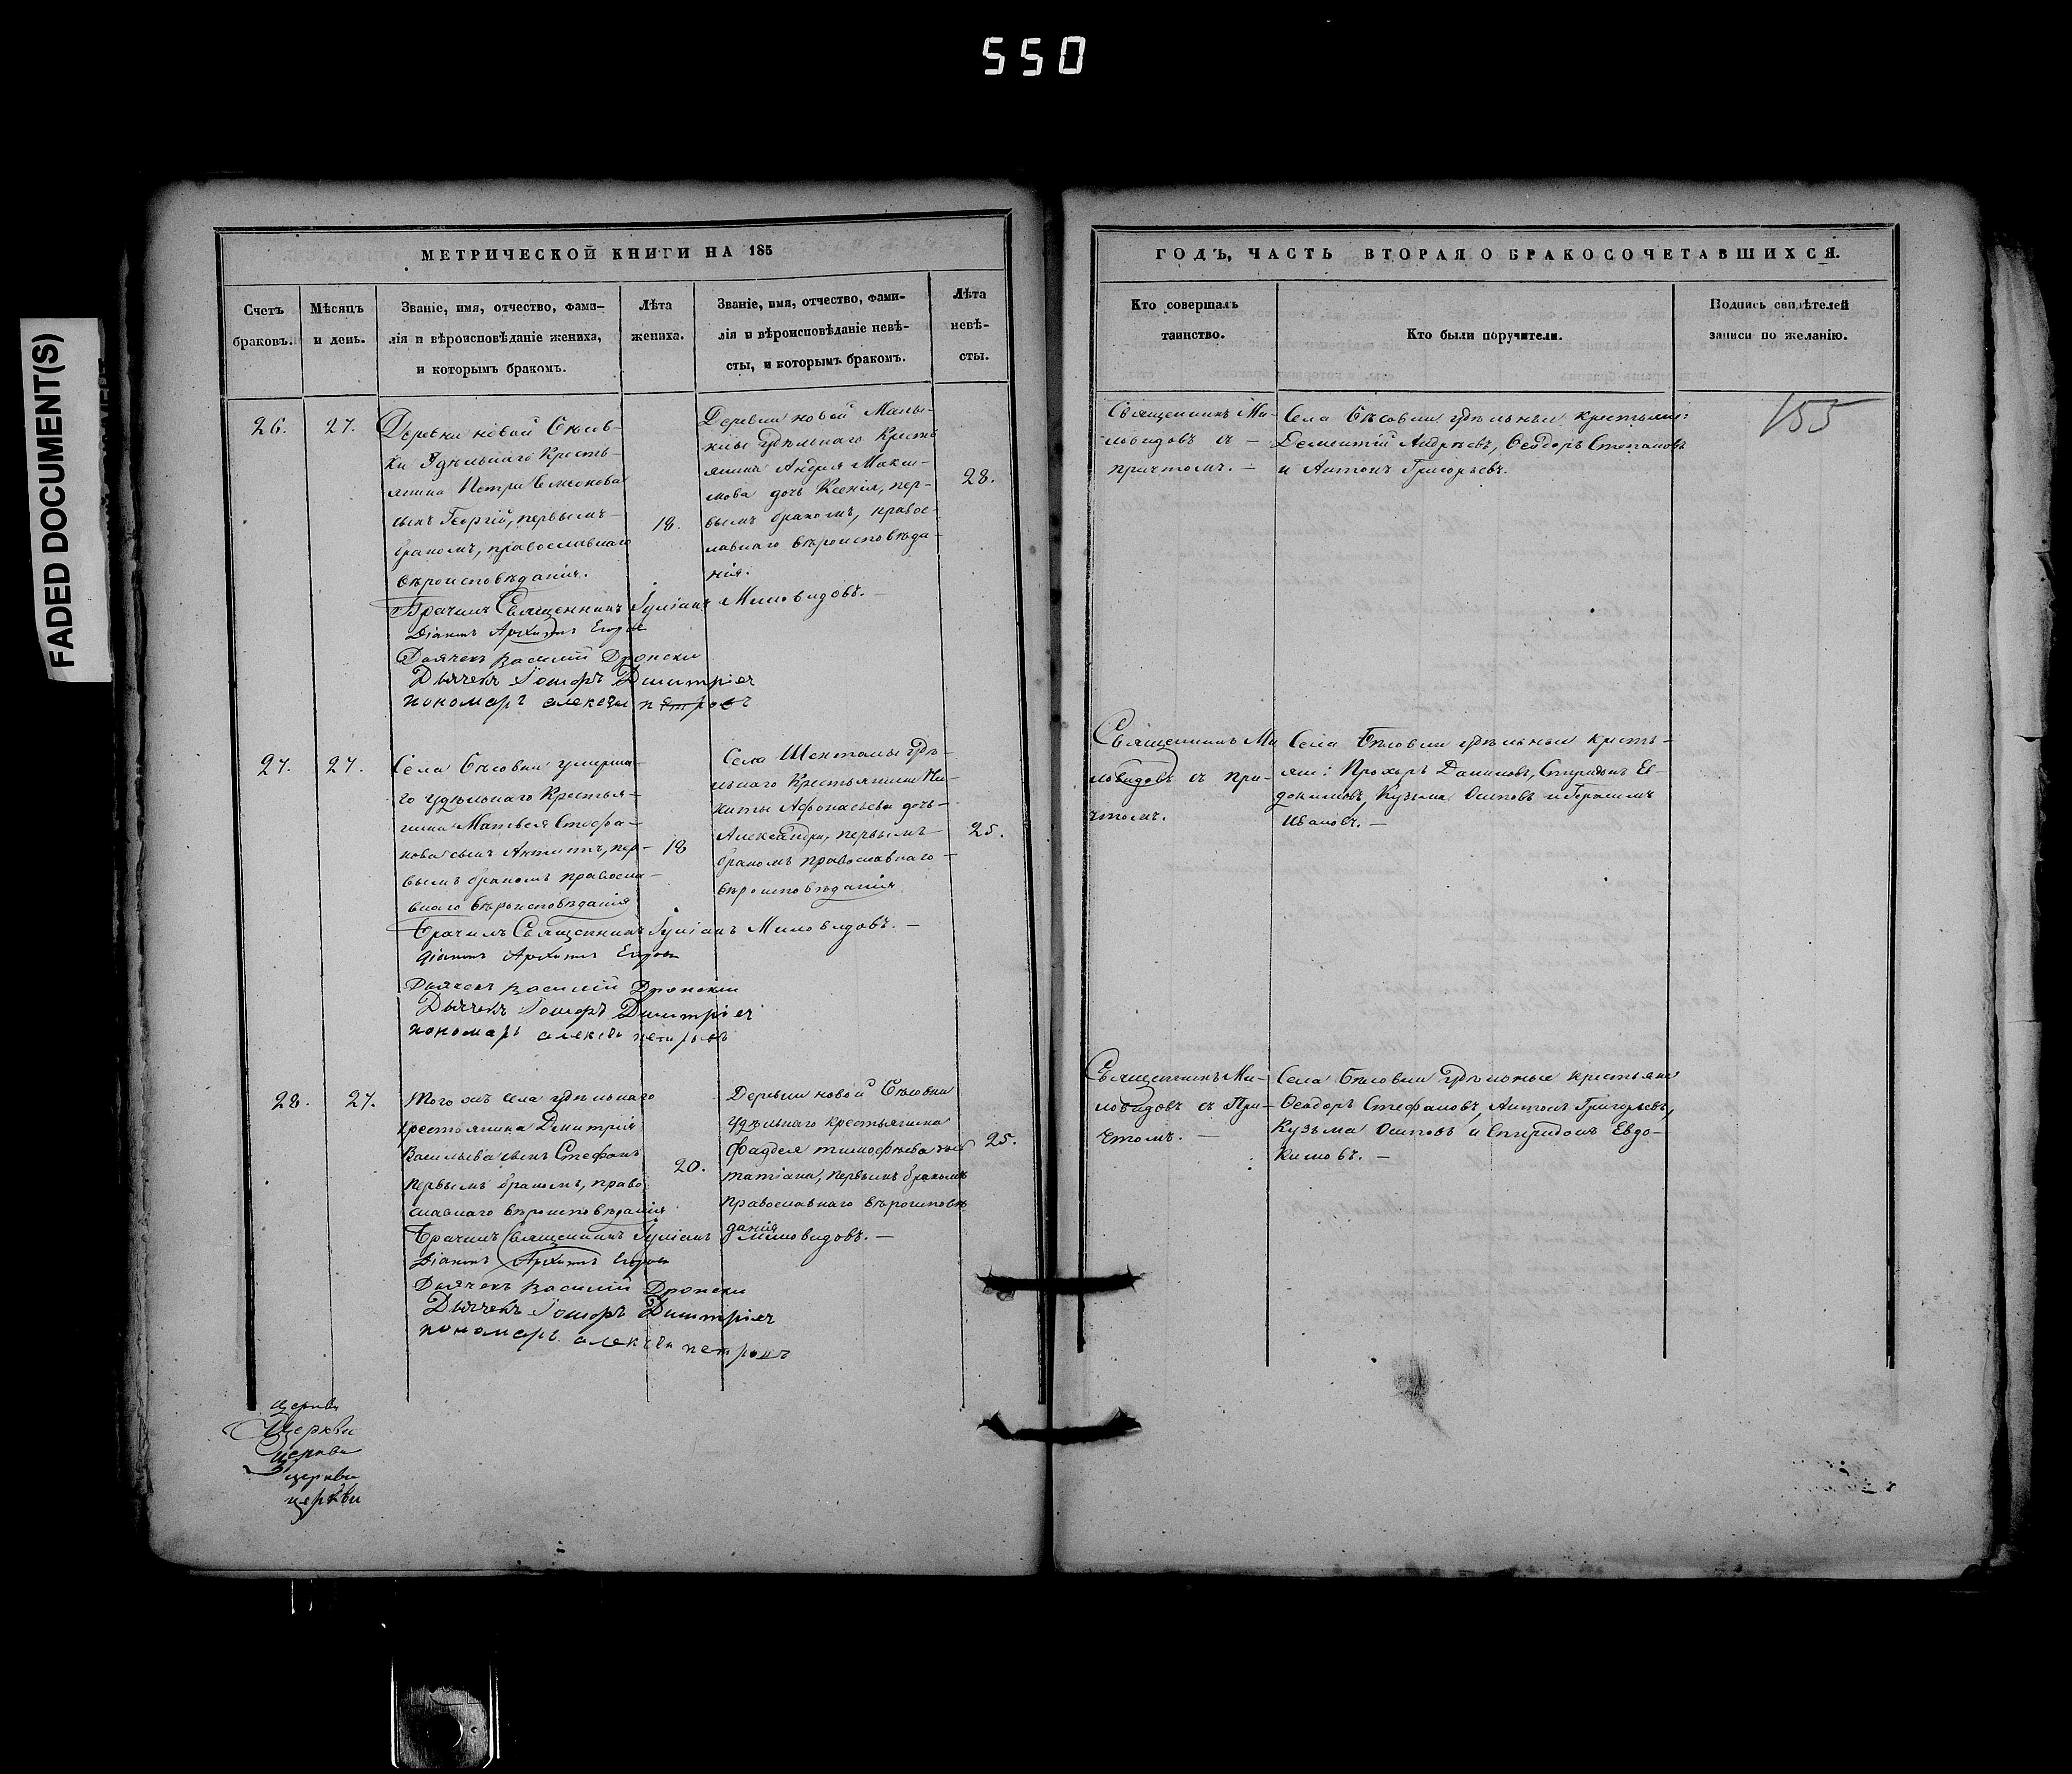 550
FADED DOCUMENT(S)
МЕТРИЧЕСКОЙ КНИГИ НА 185
Счетъ браковъ.
Мѣсяцъ и день.
Званіе, имя, отчество, фами-
лія и вѣроисповѣданіе жениха,
и которымъ бракомъ.
Лѣта жениха.
Званіе, имя, отчество, фами-
лія и вѣроисповѣданіе невѣ-
сты, и которымъ бракомъ.
Лѣта невѣ-
сты.
26.
27.
Деревни новой
ки Удѣльнаго Кресть-
янина Петра Симеонова
сынъ Георгій, первымъ
бракомъ, православнаго
вѣроисповѣданія.
18.
Деревни новой
удѣльнаго Кресть
янина Андрея Макси-
мова дочь Ксенія, пер-
вымъ бракомъ, правос-
лавнаго вѣроисповѣда-
нія.
28.
Брачилъ Священникъ Іуліанъ Миловидовъ. —
Діаконъ Архипъ
Дьячекъ Василій
Дьячекъ
пономарь алексѣи петровъ
27.
27.
Села умерша-
го удѣльнаго Крестья-
нина Матвея Стефа-
нова сынъ пер-
вымъ бракомъ правосла-
внаго вѣроисповѣданія
18
Села Шенталы удѣ-
льнаго Крестьянина Ни-
киты Афонасьева дочь
Александра, первымъ
бракомъ православнаго
вѣроисповѣданія
25.
Брачилъ Священникъ Іуліанъ Миловидовъ. —
діаконъ Архипъ
Дьячекъ Василій
Дьячекъ
пономарь алексѣи петровъ
28.
27.
Того жъ села удѣльнаго
крестьянина Димитрія
Васильева сынъ Стефанъ
первымъ бракомъ, право
славнаго вѣроисповѣданія
20.
Деревни новой
удѣльнаго крестьянина
Фаддея тимофѣева
татіана, первымъ бракомъ
православнаго вѣроисповѣ
данія
25.
Брачилъ Священникъ Іуліанъ Миловидовъ. —
Діаконъ Архипъ
Дьячекъ Василій
Дьячекъ
пономарь алексѣи петровъ
церкви
Церкви
церкви
церкви
церкви
ГОДЪ, ЧАСТЬ ВТОРАЯ О БРАКОСОЧЕТАВШИХСЯ.
Кто совершалъ
таинство.
Кто были поручители.
Подпись свидѣтелей
записи по желанію.
155
Священникъ Ми-
ловидовъ съ —
причтомъ. —
Села удѣльныи крестьяни:
Дементій Андрѣевъ, Ѳеодоръ Степановъ
и Антонъ Григорьевъ.
Священникъ Ми
ловидовъ съ при-
чтомъ.
Села удѣльныи кресть-
яни: Прохоръ Даниловъ, Спиридонъ Ев-
докимовъ, Кузьма Осиповъ и Герасимъ
Ивановъ. —
Священникъ Ми-
ловидовъ съ При-
чтомъ. —
Села удѣльные крестьяни
Ѳеодоръ Стефановъ, Антонъ Григорьевъ,
Кузьма Осиповъ и Спиридонъ Евдо-
кимовъ. —